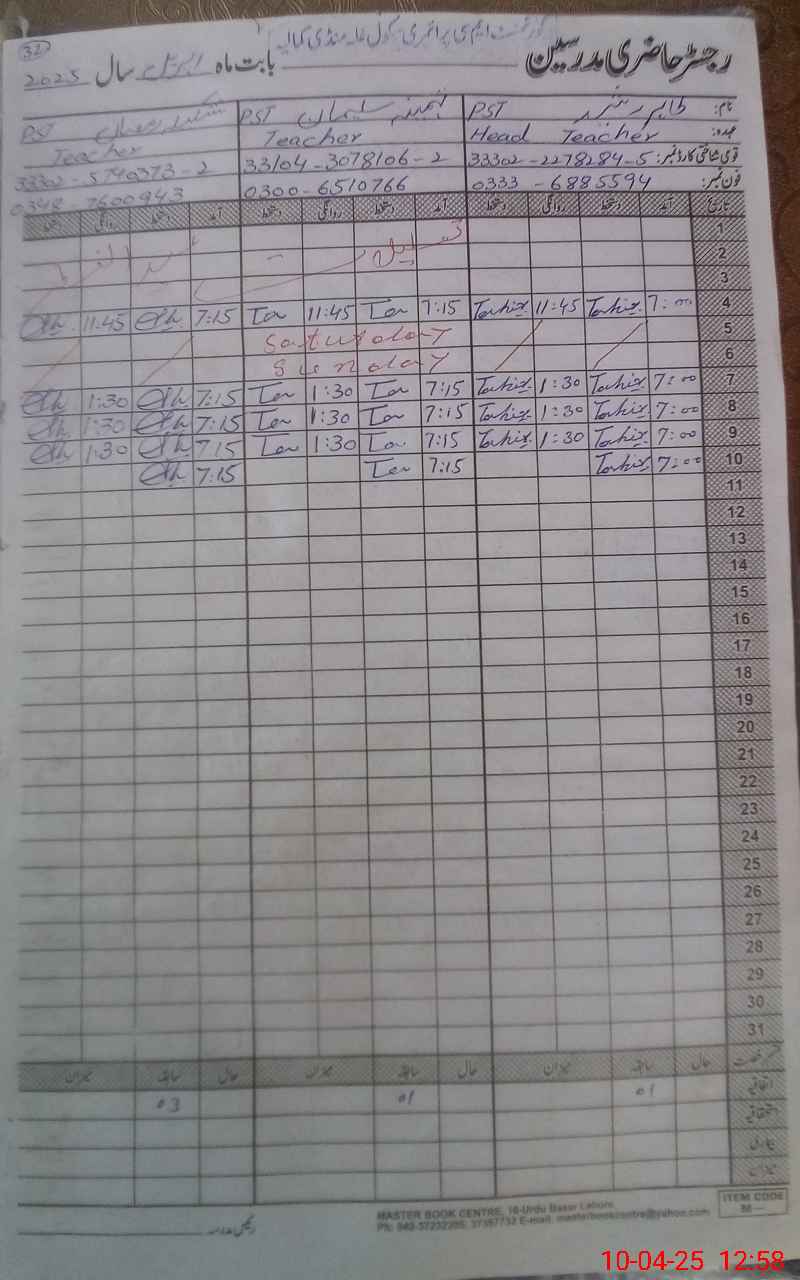 32
گورنمنٹ ایم سی پرائمری سکول غلہ منڈی کمالیہ
رجسٹر حاضری مدرسین بابت ماہ اپریل سال 2025
نام: PST PST PST
عہدہ: Head Teacher Teacher Teacher
قومی شناختی کارڈ نمبر: 33302-2278284-5 33104-3078106-2 33302-5740373-2
فون نمبر: 0333-6885594 0300-6510766 0348-7600943
تاریخ آمد دستخط روانگی دستخط آمد دستخط روانگی دستخط آمد دستخط روانگی دستخط
1
2
3
4 7:00 Tahir 11:45 Tahir 7:15 11:45 7:15 11:45
5 Saturday
6 Sunday
7 7:00 Tahir 1:30 Tahir 7:15 1:30 7:15 1:30
8 7:00 Tahir 1:30 Tahir 7:15 1:30 7:15 1:30
9 7:00 Tahir 1:30 Tahir 7:15 1:30 7:15 1:30
10 7:00 Tahir 7:15 7:15
11
12
13
14
15
16
17
18
19
20
21
22
23
24
25
26
27
28
29
30
31
حال سابقہ میزان حال سابقہ میزان حال سابقہ میزان
اتفاقیہ 01 01 03
استحقاقیہ
بیماری
میزان
رئیس مدرسہ
MASTER BOOK CENTRE, 16-Urdu Bazar Lahore.
E-mail: masterbookcentre@yahoo.com
ITEM CODE
10-04-25 12:58